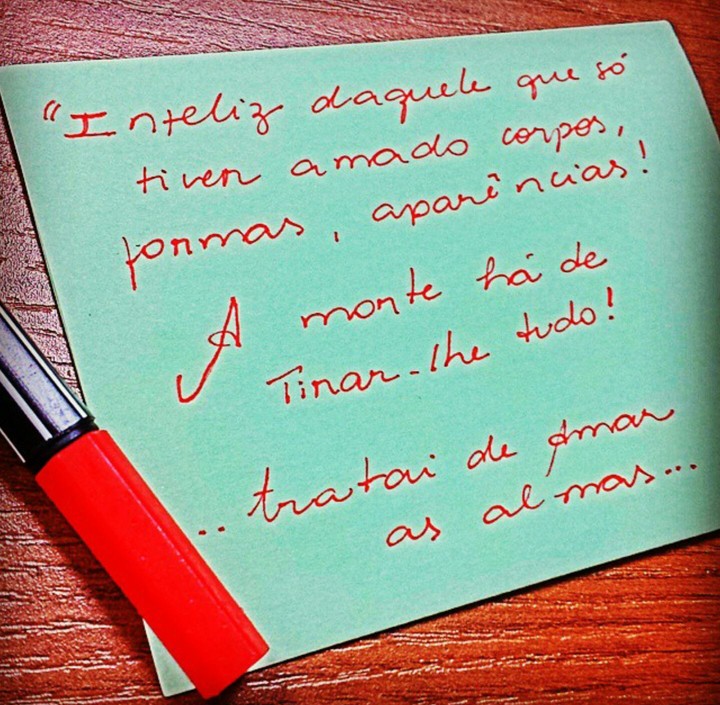 "Infeliz daquele que só
tiver amado corpos,
formas, aparências!
A morte há de
Tirar-lhe tudo!
..tratai de Amar
as almas...